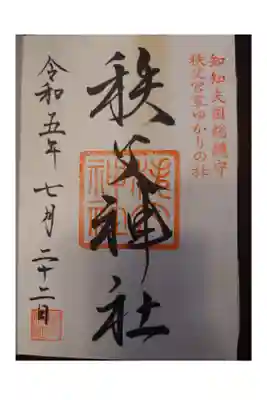 知知夫国総鎮守
秩父宮家ゆかりの社
秩父神社
令和五年七月二十二日